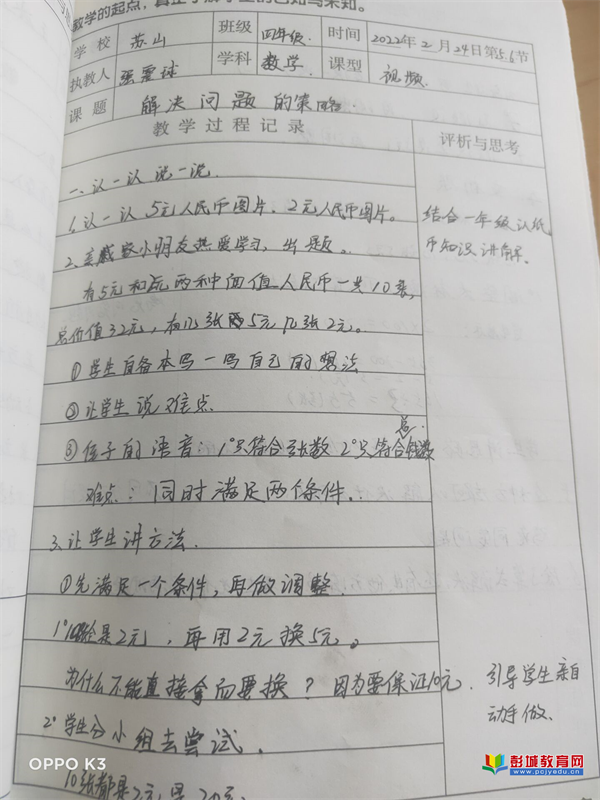 教学的起点,真正了解学生的已知与未知。
学校 苏山 班级 四年级 时间 2022年2月24日第5.6节
执教人 学科 数学 课型 视频
课题 解决问题的策略
教学过程记录 评析与思考
一、认一认 说一说
1、认一认 5元人民币图片、2元人民币图片。
结合一年级认纸币知识讲解。
2、小朋友热爱学习,出题。
有5元和2元两种面值人民币一共10张,
总价值32元,有几张5元几张2元。
①学生自备本写一写自己的想法
②让学生说难点
③孩子的语音:1°只符合张数 2°只符合总钱数
难点:同时满足两个条件.
3、让学生讲方法.
①先满足一个条件,再做调整
1°10张全是2元,再用2元换5元。
为什么不能直接拿而要换?因为要保证10元.
引导学生亲自动手做.
2°学生分小组去尝试.
10张都是2元 是20元
OPPO K3
彭城教育网
www.pcjyedu.cn